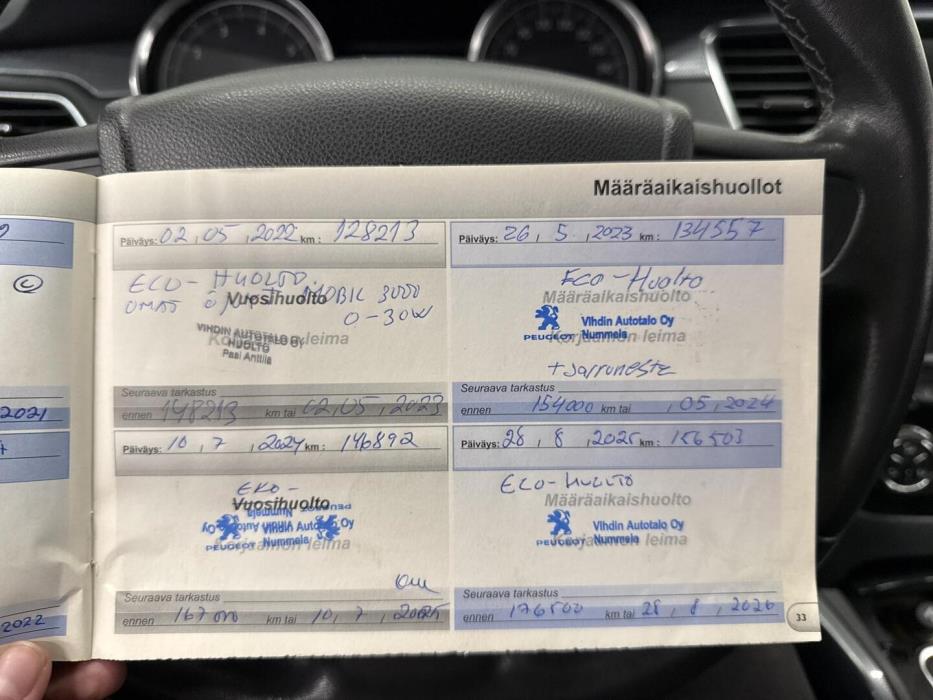 Määräaikaishuollot
Päiväys: 02, 05, 2022 km: 128213
ECO-HUOLTO
OMAT ÖLJYT MOBIL 3000
0-30W
Vuosihuolto
Korjaamon leima
VIHDIN AUTOTALO OY
HUOLTO
Pasi Anttila
Seuraava tarkastus
ennen 148213 km tai 02, 05, 2023
Päiväys: 26, 5, 2023 km: 134557
ECO-Huolto
Määräaikaishuolto
Vihdin Autotalo Oy
PEUGEOT Nummela
Korjaamon leima
+Jarruneste
Seuraava tarkastus
ennen 154000 km tai , 05, 2024
Päiväys: 10, 7, 2024 km: 146892
EKO-
Vuosihuolto
Vihdin Autotalo Oy
PEUGEOT Nummela
Vihdin Autotalo Oy
PEUGEOT Nummela
Korjaamon leima
Seuraava tarkastus
ennen 167000 km tai 10, 7, 2025
Päiväys: 28, 8, 2025 km: 156503
ECO-HUOLTO
Määräaikaishuolto
Vihdin Autotalo Oy
PEUGEOT Nummela
Korjaamon leima
Seuraava tarkastus
ennen 176500 km tai 28, 8, 2026
33
2021
2022
C